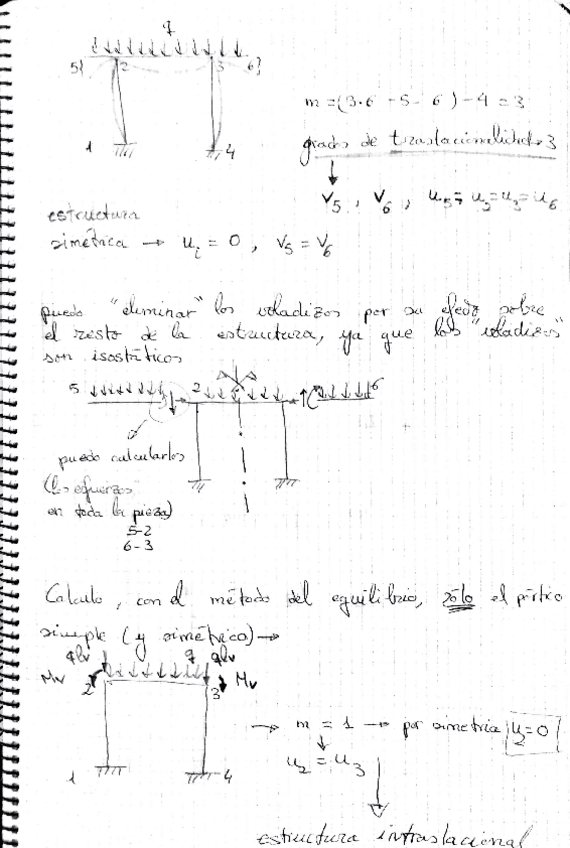 q
5} 2 3 6}
1 4
m = (3·6 - 5 - 6) - 4 = 3
grados de traslacionalidad = 3
V5 , V6 , u5 = u2 = u3 = u6
estructura
simétrica → ui = 0 , V5 = V6
puedo "eliminar" los voladizos por su efecto sobre
el resto de la estructura, ya que los "voladizos"
son isostáticos
5 2 6
puedo calcularlos
(los esfuerzos
en toda la pieza)
5-2
6-3
Calculo, con el método del equilibrio, sólo el pórtico
simple (y simétrico) →
qlv q qlv
Mv 2 3 Mv
1 4
→ m = 1 → por simetría u2 = 0
u2 = u3
estructura intraslacional